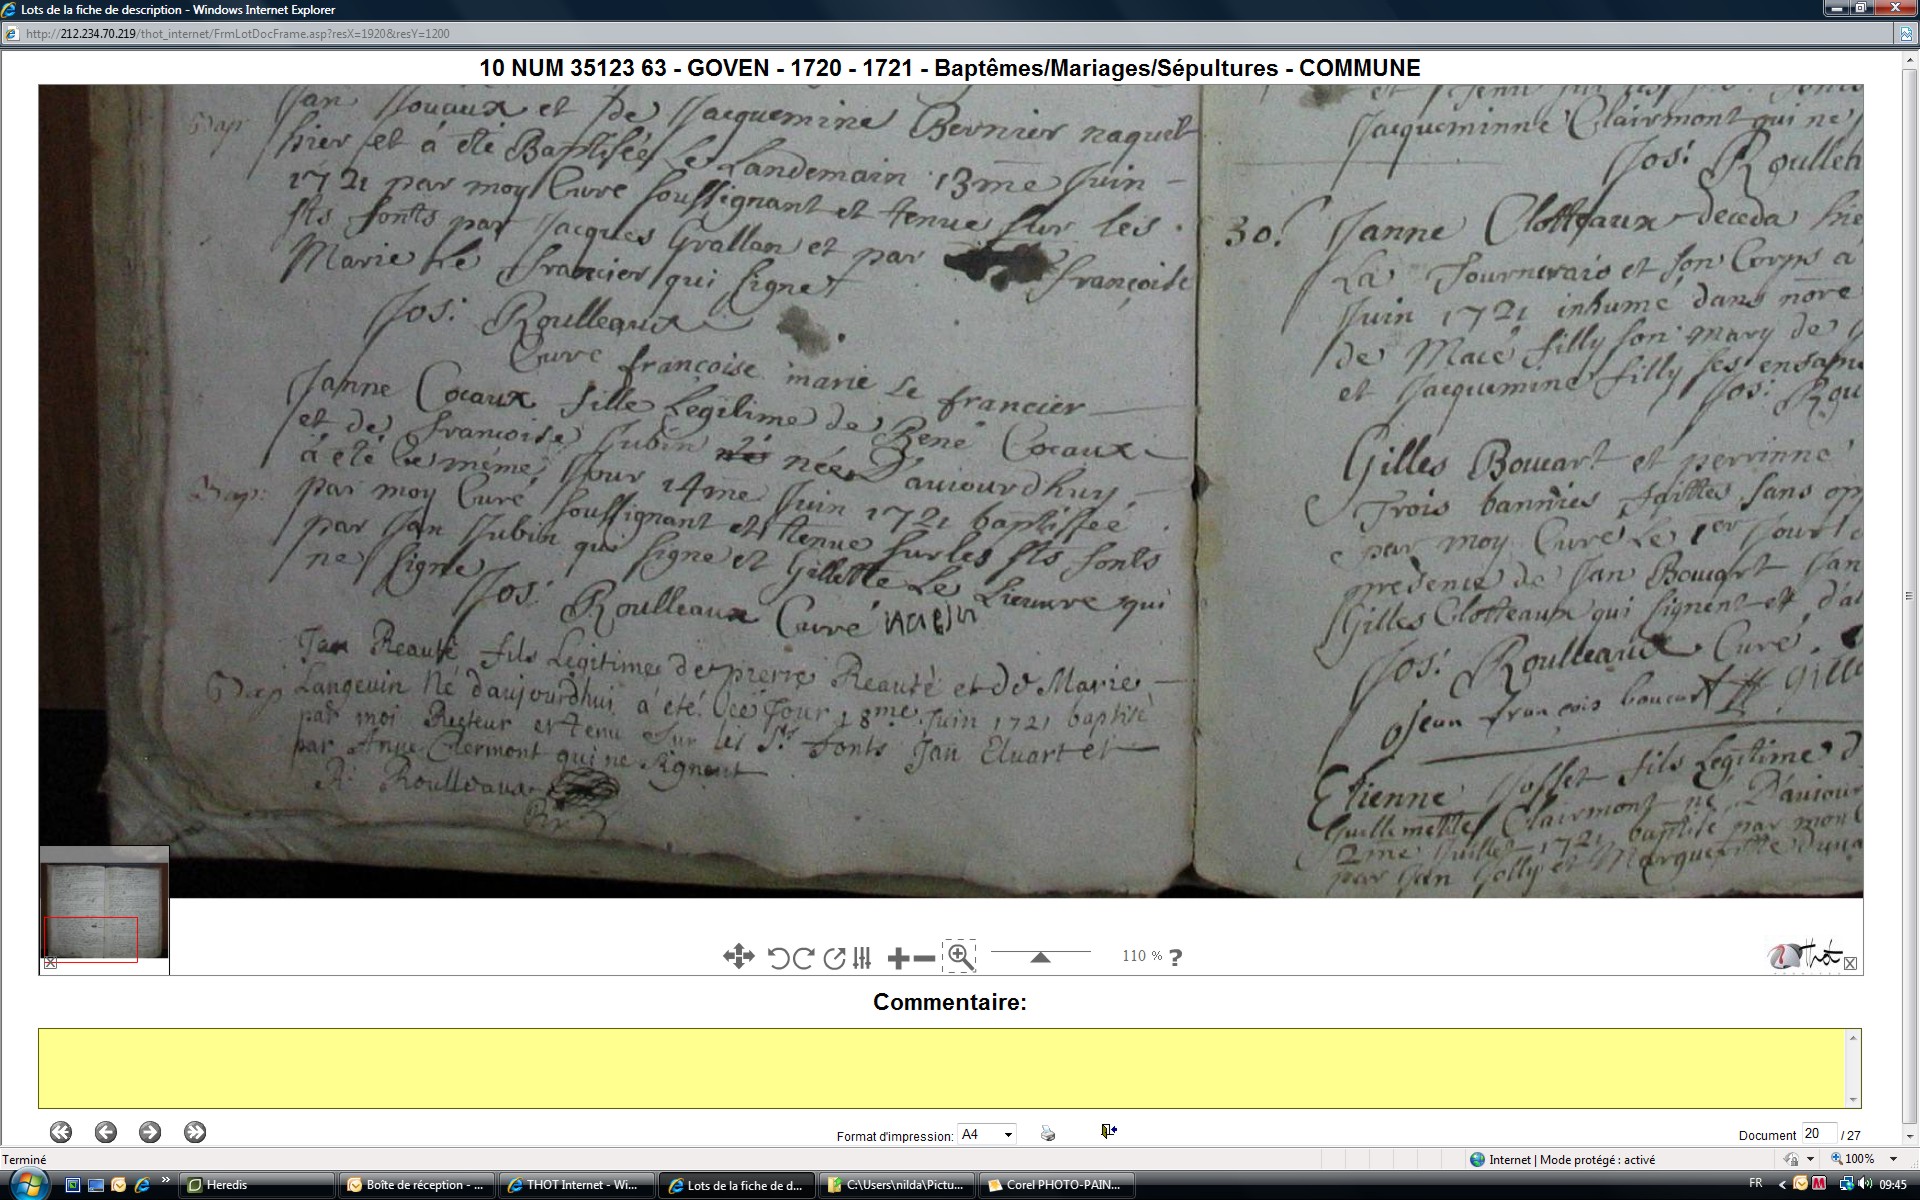 Lots de la fiche de description - Windows Internet Explorer
http://212.234.70.219/thot_internet/FrmLotDocFrame.asp?resX=1920&resY=1200
10 NUM 35123 63 - GOVEN - 1720 - 1721 - Baptêmes/Mariages/Sépultures - COMMUNE
Jan Jouaux et de Jacquemine Bernier naquit
Bap:
hier et à été Baptisée Le Landemain 13me Juin
1721 par moy Curé soussignant et tenue sur les
sts fonts par Jacques Grallan et par françoise
Marie Le francier qui signet
Jos: Roulleaux
Curé françoise marie le francier
Janne Cocaux fille Legitime de René Cocaux
et de francoise Jubin née D'aujourdhuy
Bap:
à été le méme Jour 14me Juin 1721 baptissée
par moy Curé soussignant et tenue sur les sts fonts
par Jan Jubin qui signe et Gillette Le Lieuvre qui
ne signe
Jos: Roulleaux Curé
Jan Reauté fils Legitime de pierre Reauté et de Marie
Bap
Langevin Né d'aujourdhui à été Cé Jour 18me Juin 1721 baptisé
par moi Recteur et tenu sur les Sts fonts Jan Eluart et
par Anne Clermont qui ne signent
R. Roulleaux
Jacqueminne Clairmont qui ne
Jos: Roullea
30. Janne Clotteaux deceda hie
La Tournerais et son Corps à
Juin 1721 inhumé dans nôre
de Macé filly son mary de
et Jacquemine filly ses enfans
Jos: Rou
Gilles Boucart et perrinne
Trois bannies faittes sans opp
par moy Curé Le 1er Jour
presence de Jan Boucart Jan
Gilles Clotteaux qui signent et d'a
Jos: Roulleaux Curé.
jean françois boucart Gille
Etienne Josset fils Legitime d
Guillemette Clairmont né D'aujour
2me Juillet 1721 baptisé par moy
par Jan Jolly et Margueritte
110 % ?
Thot
Commentaire:
Format d'impression: A4
Document 20 / 27
Terminé
Internet | Mode protégé : activé
100%
Heredis
Boîte de réception - ...
THOT Internet - Wi...
Lots de la fiche de d...
C:\Users\nilda\Pictu...
Corel PHOTO-PAIN...
FR
09:45